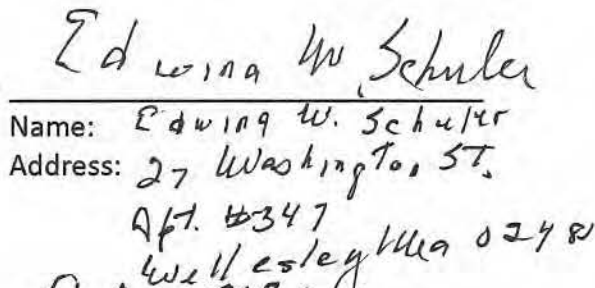 Edwina W. Schuler
Name: Edwina W. Schuler
Address: 27 Washington ST.
Apt. #347
Wellesley Ma